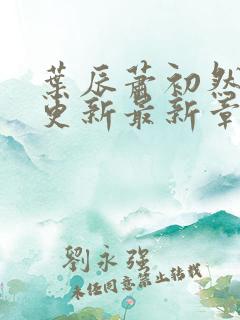 葉辰蕭初然
更新最新章
劉永强
未经同意禁止转载